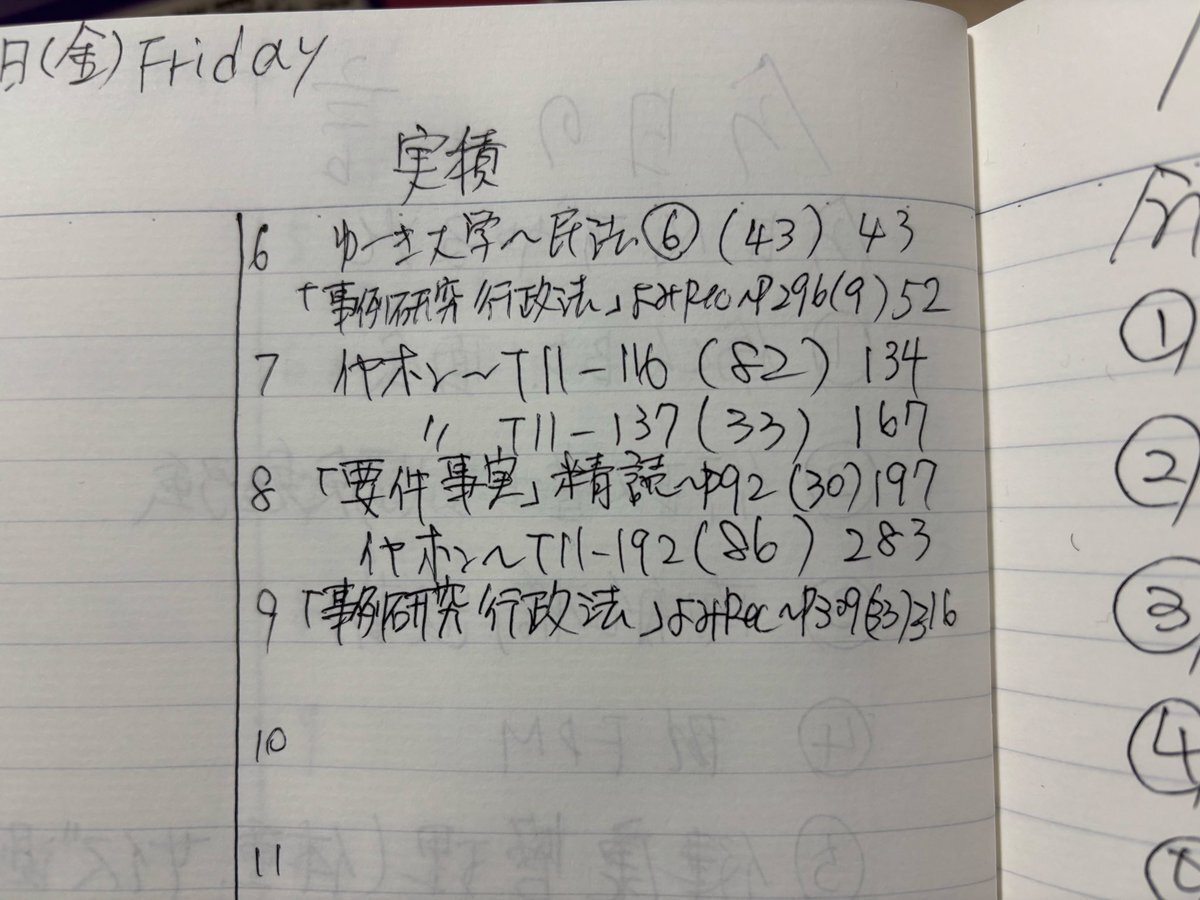 日(金) Friday
実積
6 ゆーき大学〜民法⑥ (43) 43
「事例研究行政法」よみRec〜P296(9) 52
7 イヤホン〜T11-116 (82) 134
〃 T11-137 (33) 167
8 「要件事実」精読〜P92 (30) 197
イヤホン〜T11-192 (86) 283
9 「事例研究行政法」よみRec〜P309(33) 316
10
11
①
②
③
④